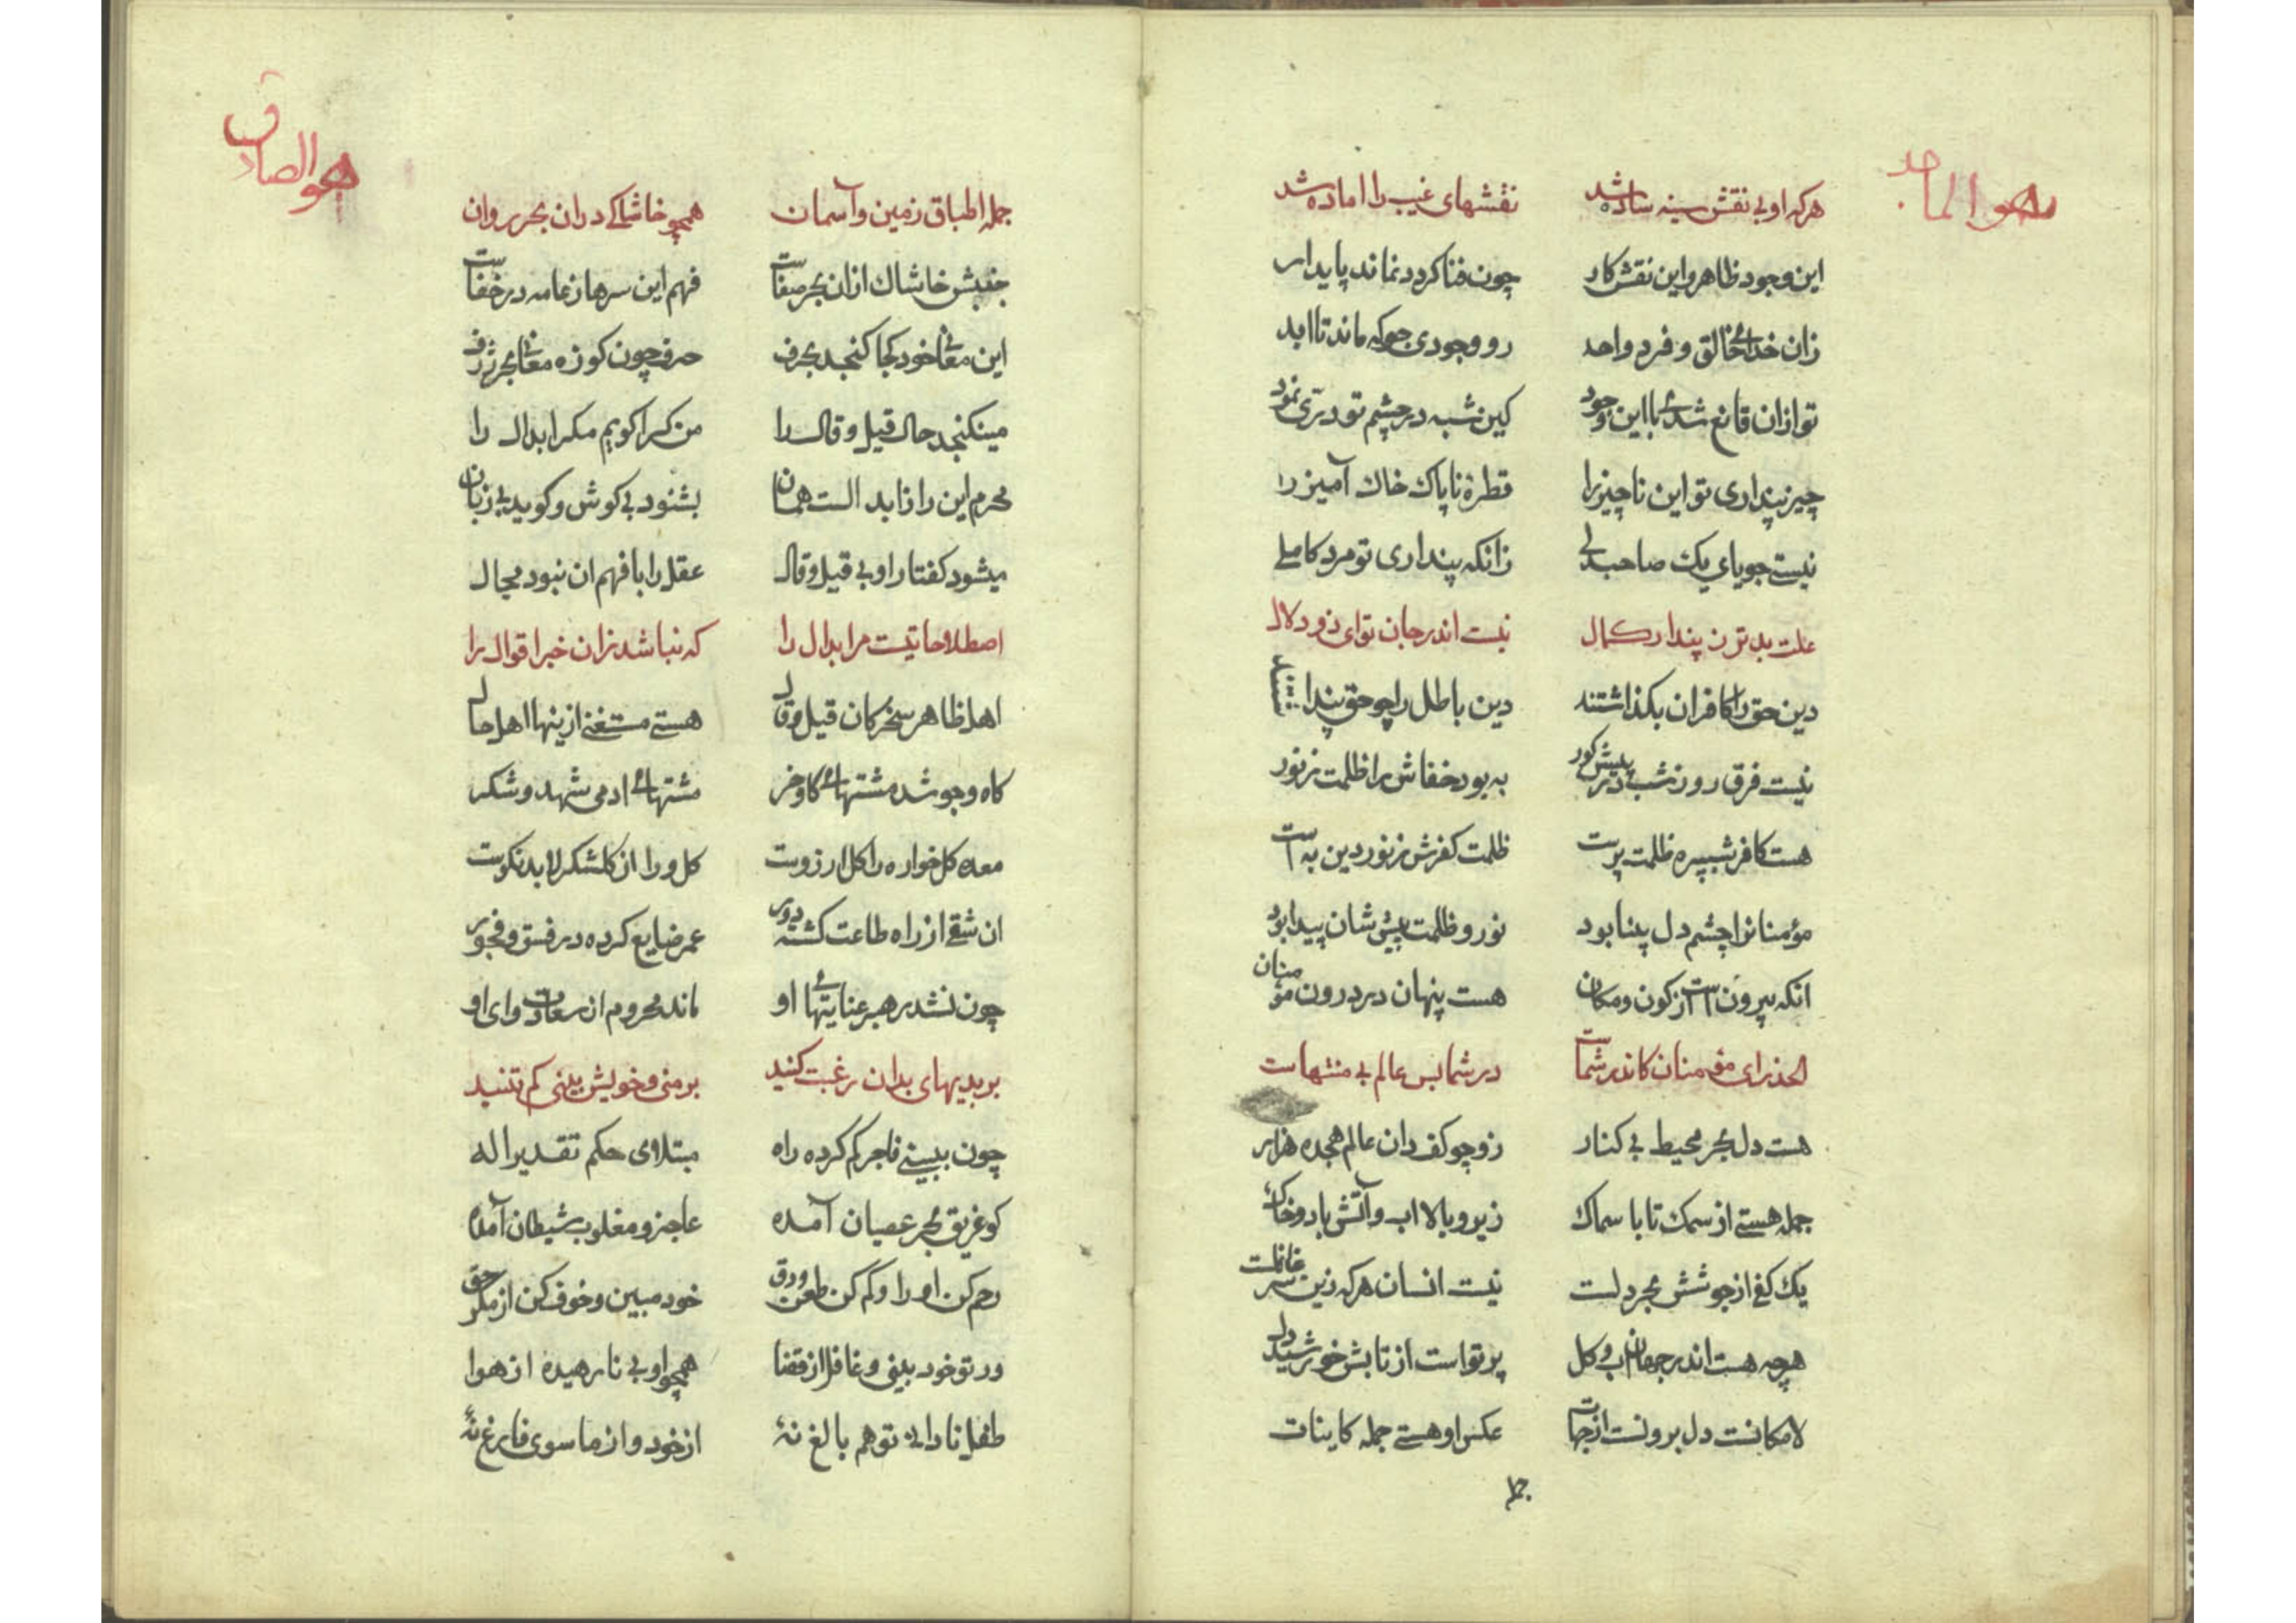 هو الماجد
هرکه او بی نقش سینه ساده شد نقشهای غیب را اماده شد
این وجود ظاهر و این نقش کار چون فنا کردد نماند پایدار
زان خدائے خالق و فرد واحد رو وجودی جو که ماند تا ابد
تو ازان قانع شدۀ با این وجود کین شبه در چشم تو درّی نمود
چیز پنداری تو این ناچیز را قطرۀ ناپاك خاك آمیز را
نیستے جویای یك صاحبدلے زانکه پنداری تو مرد کاملے
علت بدتر ز پندار کمال نیست اندر جان تو ای ذو دلال
دین حق را کافران بکذاشتند دین باطل را چو حق پنداشتند
نیست فرق روز شب در پیش کور به بود خفاش را ظلمت ز نور
هست کافر شبپره ظلمت پرست ظلمت کفرش ز نور دین به است
مؤمنانرا چشم دل بینا بود نور و ظلمت پیش شان پیدا بود
انکه بیرون است از کون و مکان هست پنهان در درون مؤمنان
الحذر ای مؤمنان کاندر شماست در شما بس عالم بی منتهاست
هست دل بحر محیط بی کنار زو چو کف دان عالم هجده هزار
جمله هستے از سمك تا با سماك زیر و بالا اب و آتش باد و خاك
یك کفے از جوشش بحر دلست نیست انسان هرکه زین سر غافلست
هرچه هست اندر جهان اب و کل پرتو است از تابش خورشید دل
لامکانست دل برونست از جهات عکس او هستے جمله کاینات
جمله
هو الصادق
جمله اطباق زمین و آسمان همچو خاشاکے دران بحر روان
جنبش خاشاك ازان بحر صفاست فهم این سرها ز عامه در خفاست
این معانے خود کجا کنجد بحرف حرف چون کوزه معانے بحر ژرف
مینکنجد حال قیل و قال را من کرا کویم مکر ابدال را
محرم این راز ابدالست همان بشنود بی کوش و کوید بی زبان
میشود کفتار او بی قیل و قال عقل را با فهم ان نبود مجال
اصطلاحاتیست مر ابدال را که نباشد زان خبر اقوال را
اهل ظاهر سخرکان قیل و قال هستے مستغنے ازینها اهل حال
کاه و جو شد مشتهائے کاو خر مشتهائے ادمی شهد و شکر
معده کل خواره را کل ارزوست کل ورا از کلشکر لابد نکوست
ان شقے از راه طاعت کشته دور عمر ضایع کرده در فسق و فجور
چون نشد رهبر عنایتهائے او ماند محروم از سعادت وای او
بر بدیهای بدان رغبت کنید بر منی و خویش بینی کم تنید
چون ببینے فاجر کم کرده راه مبتلای حکم تقدیر اله
کو غریق بحر عصیان آمده عاجز و مغلوب شیطان آمده
رحم کن او را و کم کن طعن و دق خود مبین و خوف کن از مکر حق
ور تو خود بینی و غافل از قضا همچو اوبی نارهیده از هوا
طفل نادانے تو هم بالغ نۀ از خود و از ماسوی فارغ نۀ